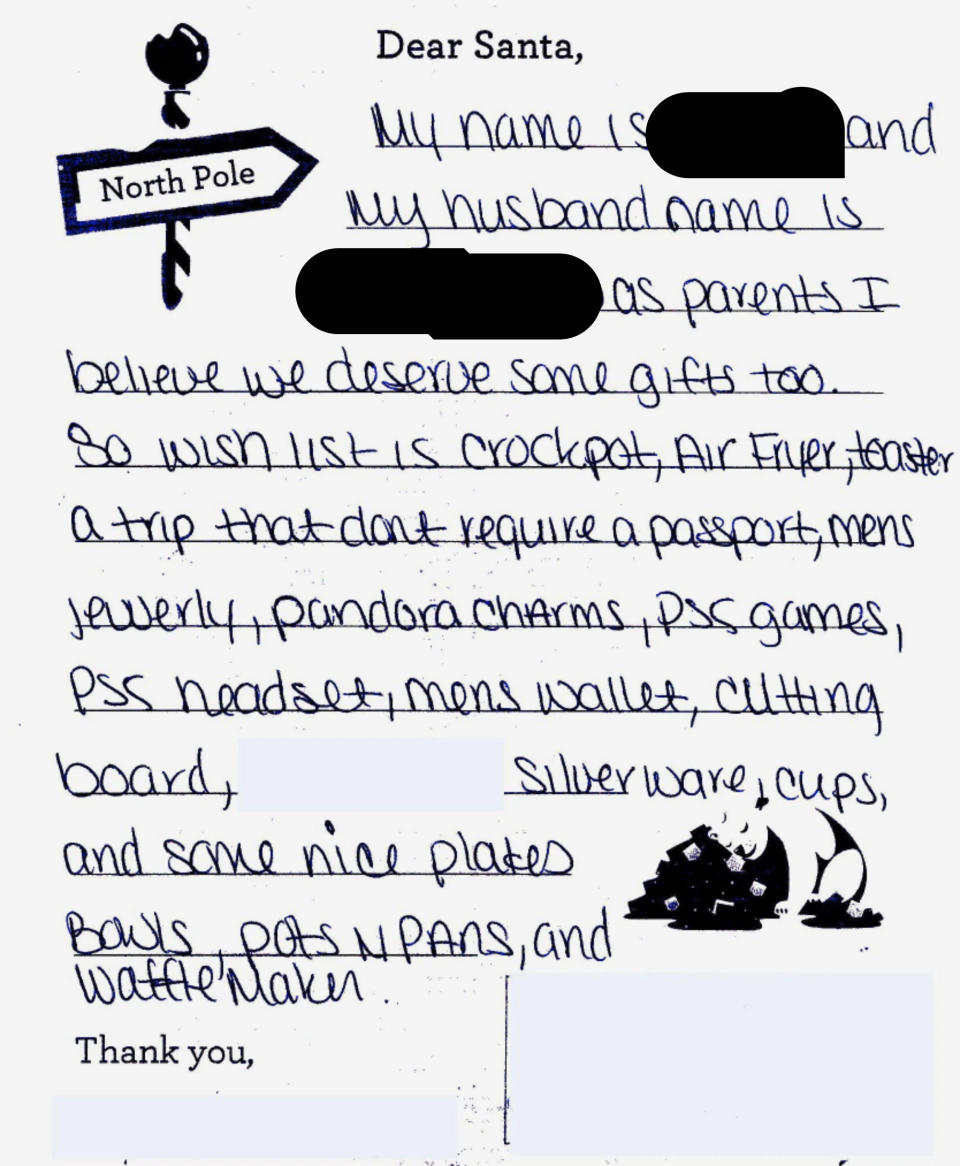 Dear Santa,
North Pole
My name is and
My husband name is
as parents I
believe we deserve some gifts too.
So wish list is crockpot, Air Fryer, toaster
a trip that dont require a passport, mens
jewerly, pandora chArms, PS5 games,
PS5 headset, mens wallet, cutting
board, silverware, cups,
and some nice plates
Bowls, pots N PAns, and
Waffle Maker.
Thank you,